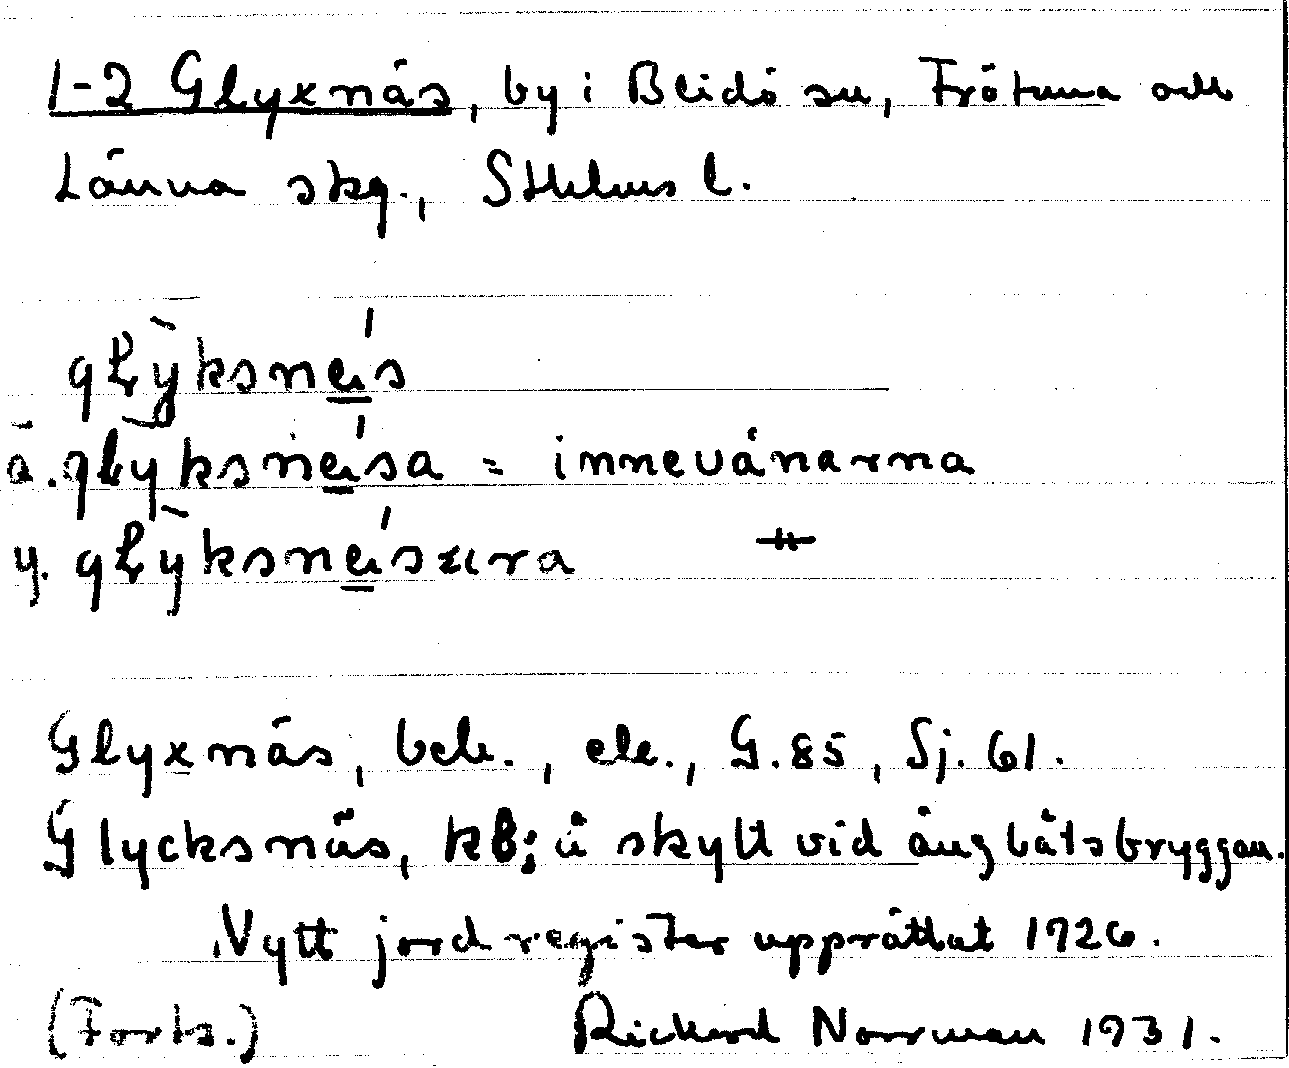 1-2 Glyxnäs, by i Blidö sn, Frötuna och
Länna skg., Sthlms l.
gɫỳksnäi̲s
ä. glyksnäi̲sa = innevånarna
y. gɫỳksnäi̲sara
Glyxnäs, beb., ek., G.85, Sj. 61.
Glycksnäs, kb; å skylt vid ångbåtsbryggan.
Nytt jordregister upprättat 1926.
(Forts.) Richard Norrman 1931.